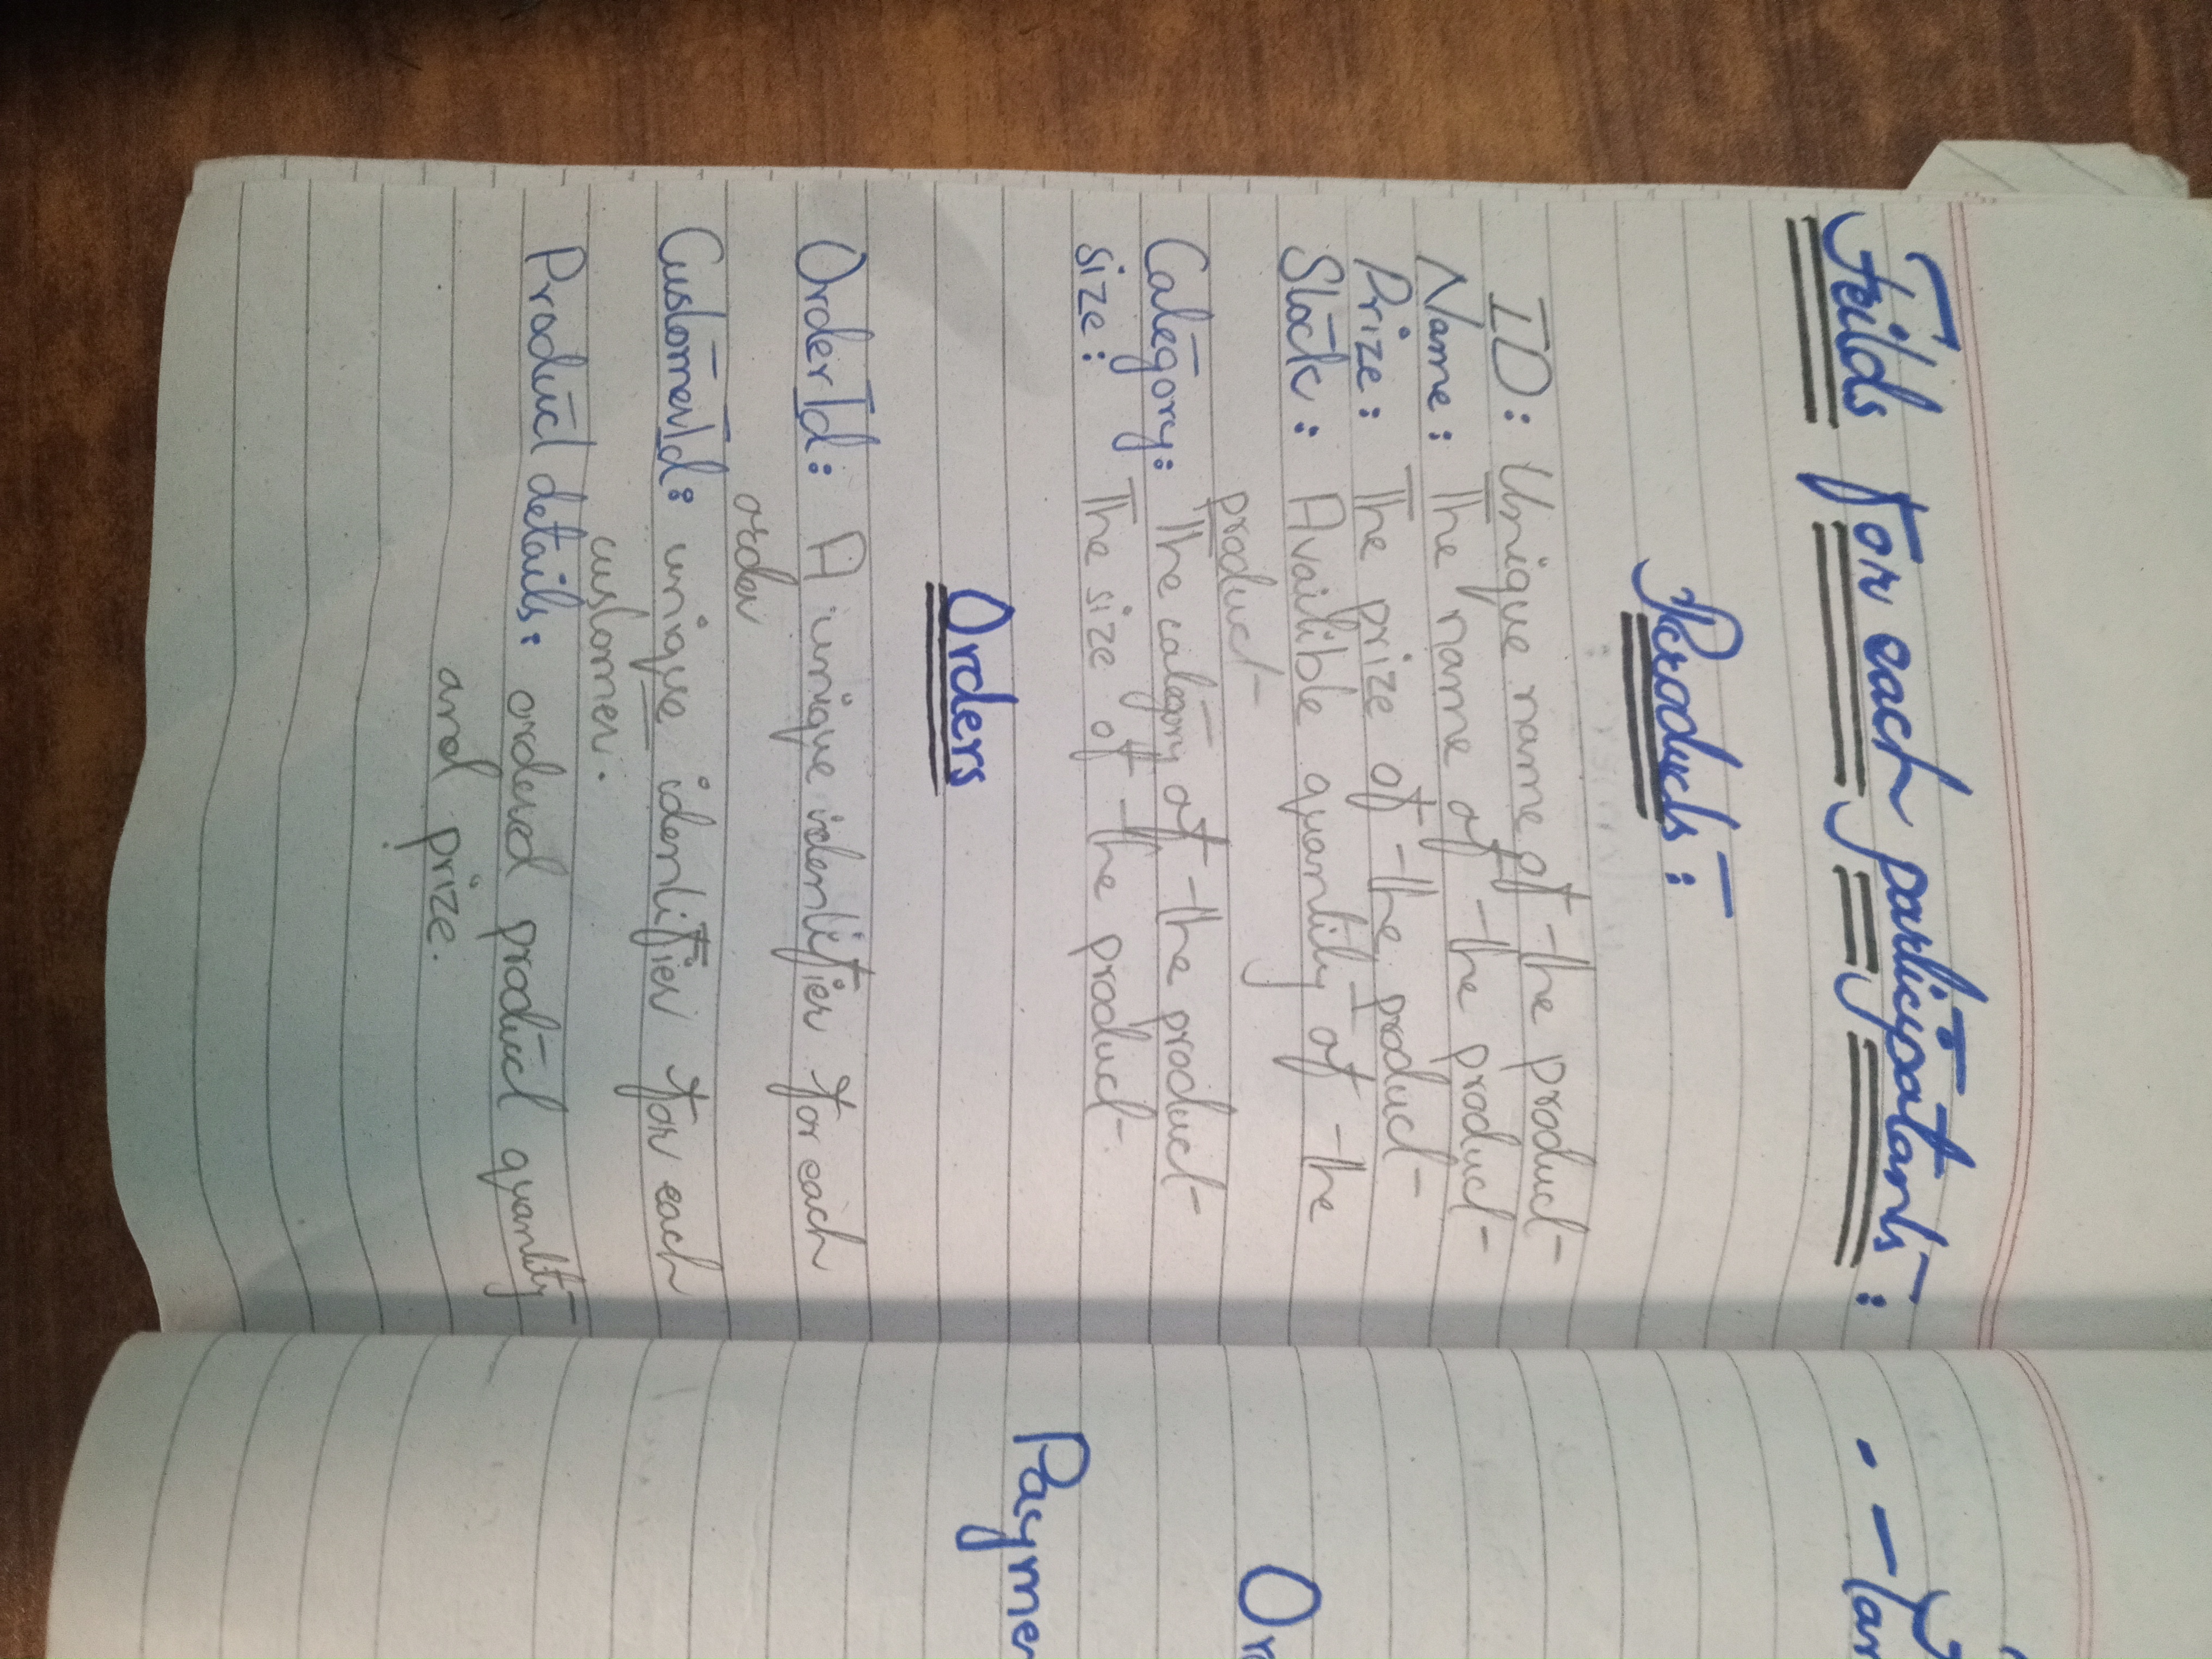 Feilds for each participatants:
Products:
ID: Unique name of the product
Name: The name of the product
Prize: The prize of the product
Stock: Availible quantity of the
product
Category: The category of the product
size: The size of the product.
Orders
OrderId: A unique identifier for each
order
CustomerId: unique identifier for each
customer.
Product details: ordered product quantity
and prize.
Or
Payme